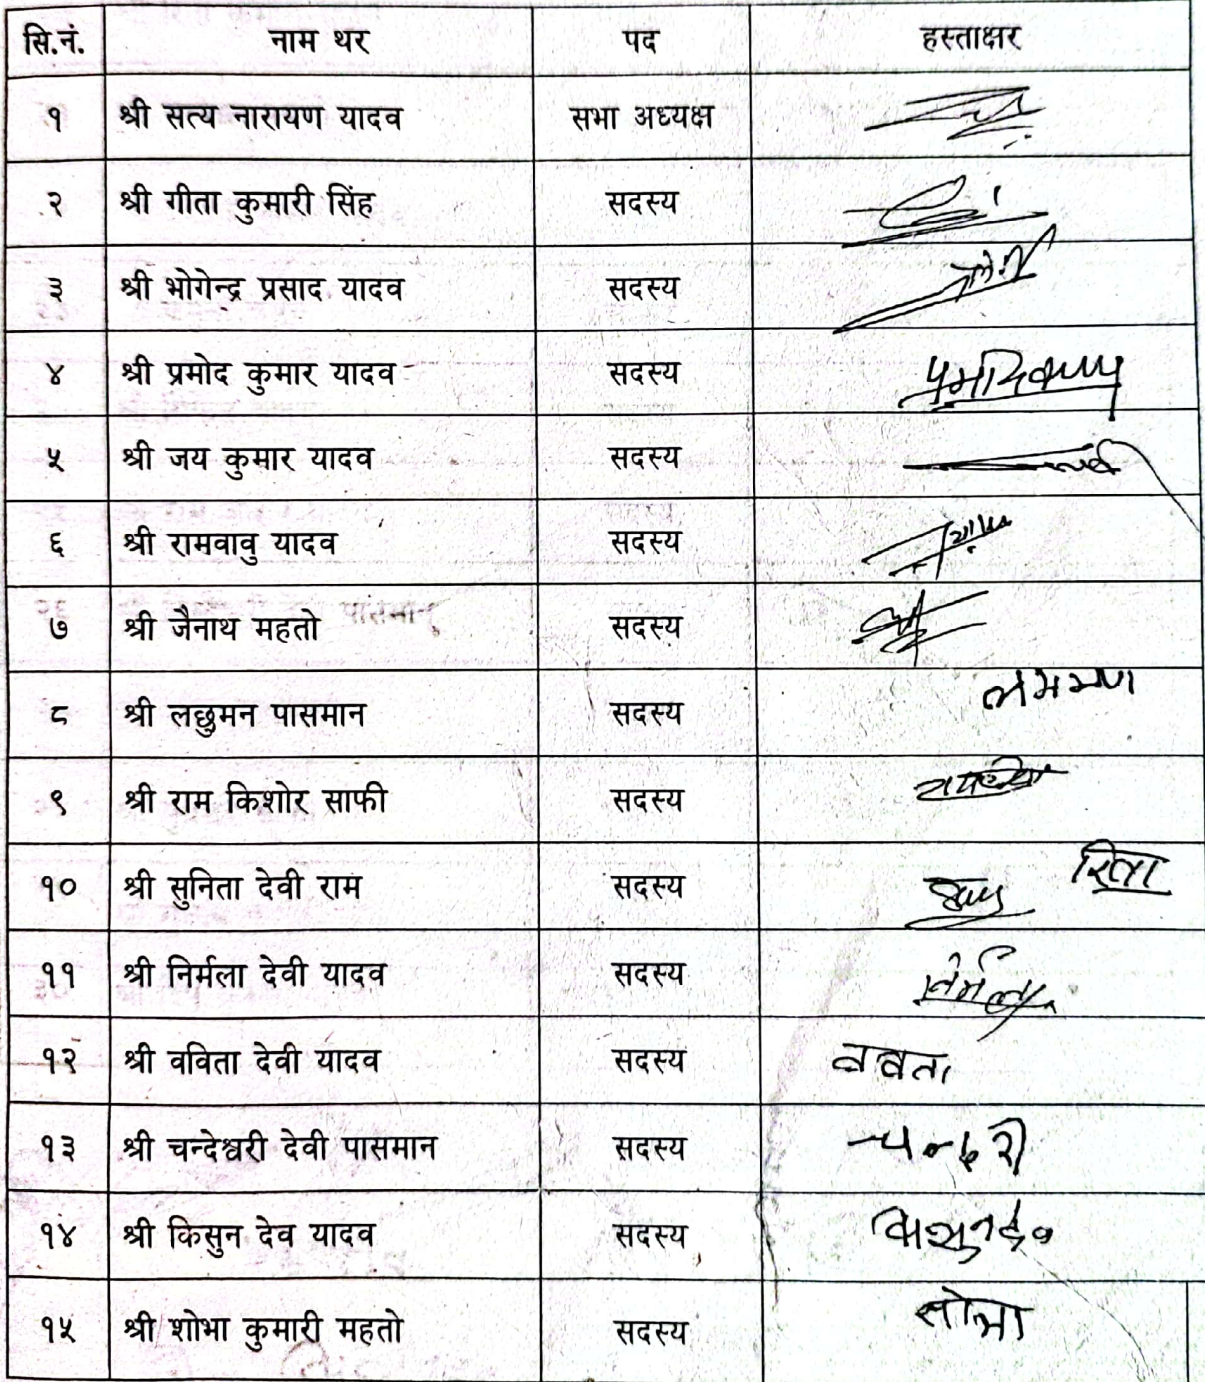 सि.नं. नाम थर पद हस्ताक्षर
१ श्री सत्य नारायण यादव सभा अध्यक्ष
२ श्री गीता कुमारी सिंह सदस्य
३ श्री भोगेन्द्र प्रसाद यादव सदस्य
४ श्री प्रमोद कुमार यादव सदस्य
५ श्री जय कुमार यादव सदस्य
६ श्री रामवावु यादव सदस्य
७ श्री जैनाथ महतो सदस्य
८ श्री लछुमन पासमान सदस्य
९ श्री राम किशोर साफी सदस्य
१० श्री सुनिता देवी राम सदस्य रिता
११ श्री निर्मला देवी यादव सदस्य निर्मला
१२ श्री वविता देवी यादव सदस्य ववता
१३ श्री चन्देश्वरी देवी पासमान सदस्य
१४ श्री किसुन देव यादव सदस्य
१५ श्री शोभा कुमारी महतो सदस्य सोभा